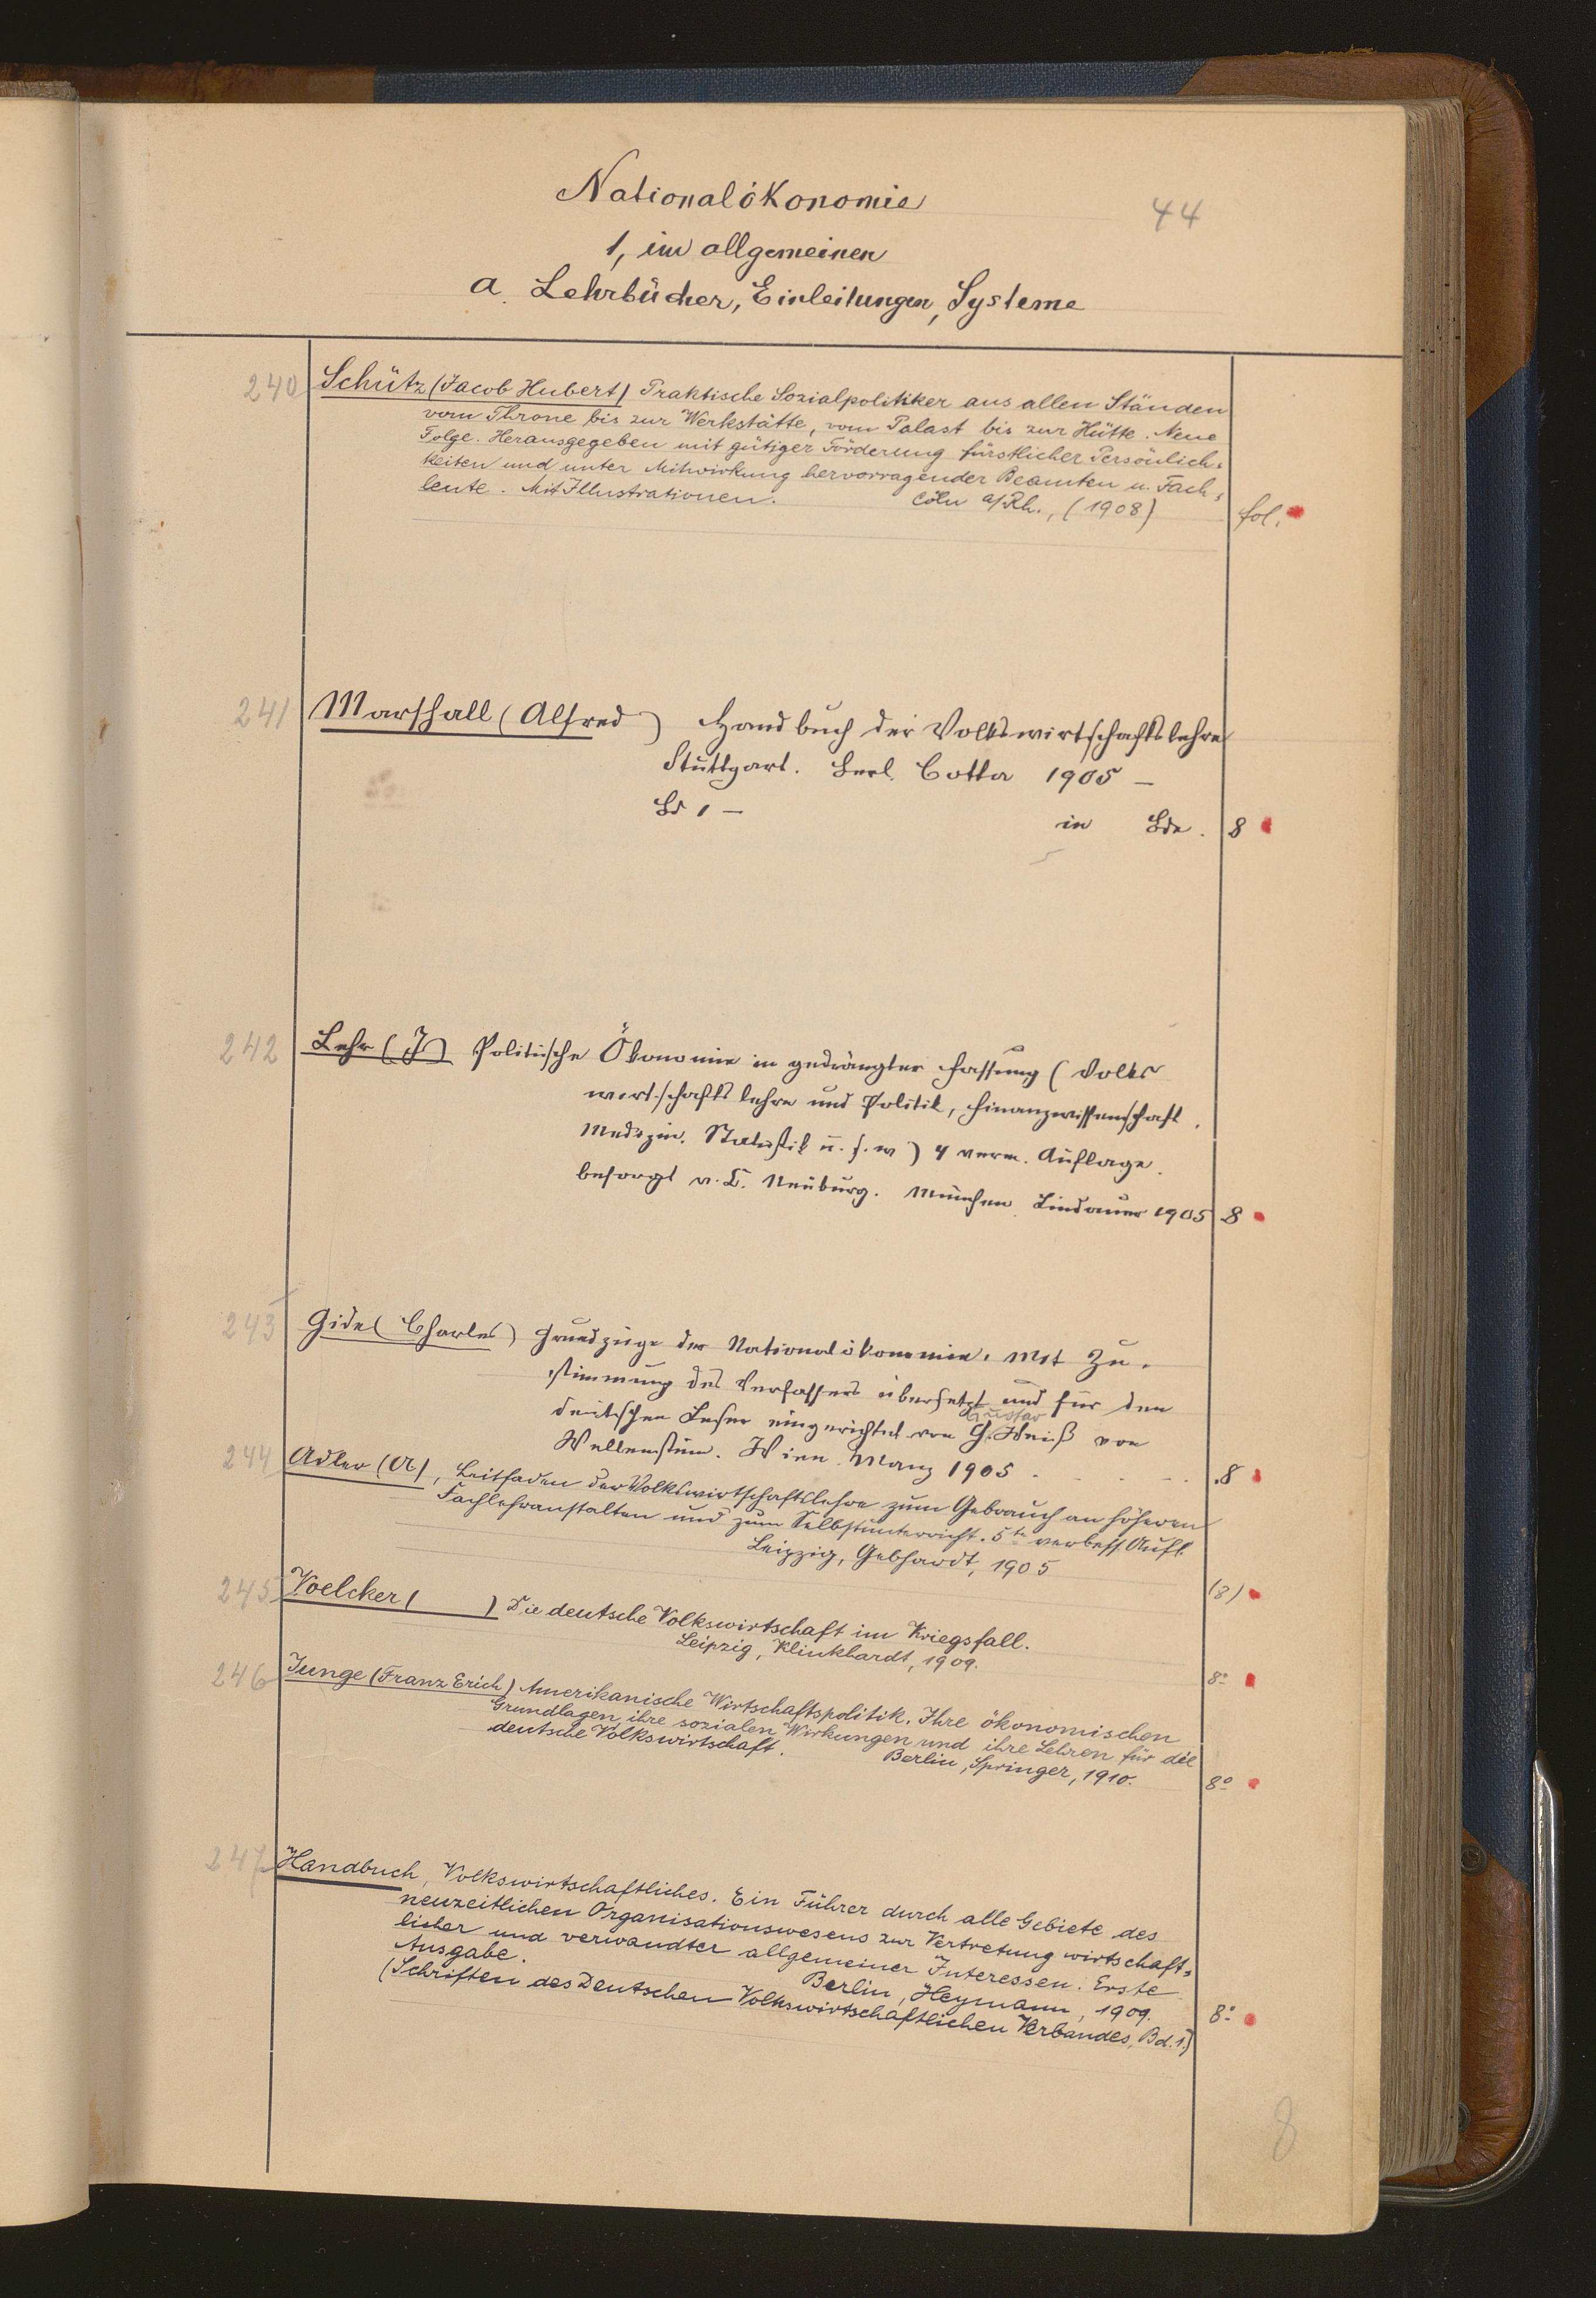 Nationalökonomie
44
1, im allgemeinen
a. Lehrbücher, Einleitungen, Systeme
240 Schütz (Jacob Hubert) Praktische Sozialpolitiker aus allen Ständen
vom Throne bis zur Werkstätte, vom Palast bis zur Hütte. Neue
Folge. Herausgegeben mit gütiger Förderung fürstlicher Persönlich-
keiten und unter Mitwirkung hervorragender Beamten u. Fach-
leute. Mit Illustrationen. Cöln a/Rh., (1908) fol.
241 Marshall (Alfred) Handbuch der Volkswirtschaftslehre
Stuttgart. Berl. Cotta 1905 –
Bd 1 – in Bde. 8
5
242 Lehr (J) Politische Ökonomie in gedrängter Fassung (Volks
wirtschaftslehre und Politik, Finanzwissenschaft,
Medizin. Statistik u. s. w) 4 verm. Auflage.
besorgt v. C. Neuburg. München, Lindauer 1905 8
243 Gide (Charles) Grundzüge der Nationalökonomie. Mit Zu-
stimmung des Verfassers übersetzt und für den
Gustav
deutschen Leser eingerichtet von G. Weiß von
Wellenstein. Wien Manz 1905 . . . . . 8
244 Adler (A), Leitfaden der Volkswirtschaftslehre zum Gebrauch an höheren
Fachlehranstalten und zum Selbstunterricht. 5te verbess Aufl.
Leipzig, Gebhardt, 1905 (8)
245 Voelcker ( ) Die deutsche Volkswirtschaft im Kriegsfall.
Leipzig, Klinkhardt, 1909. 8º
246 Junge (Franz Erich) Amerikanische Wirtschaftspolitik. Ihre ökonomischen
Grundlagen, ihre sozialen Wirkungen und ihre Lehren für die
deutsche Volkswirtschaft. Berlin, Springer, 1910. 8º
247 Handbuch, Volkswirtschaftliches. Ein Führer durch alle Gebiete des
neuzeitlichen Organisationswesens zur Vertretung wirtschaft-
licher und verwandter allgemeiner Interessen. Erste
Ausgabe. Berlin, Heymann, 1909. 8º
(Schriften des Deutschen Volkswirtschaftlichen Verbandes, Bd. 1.)
8